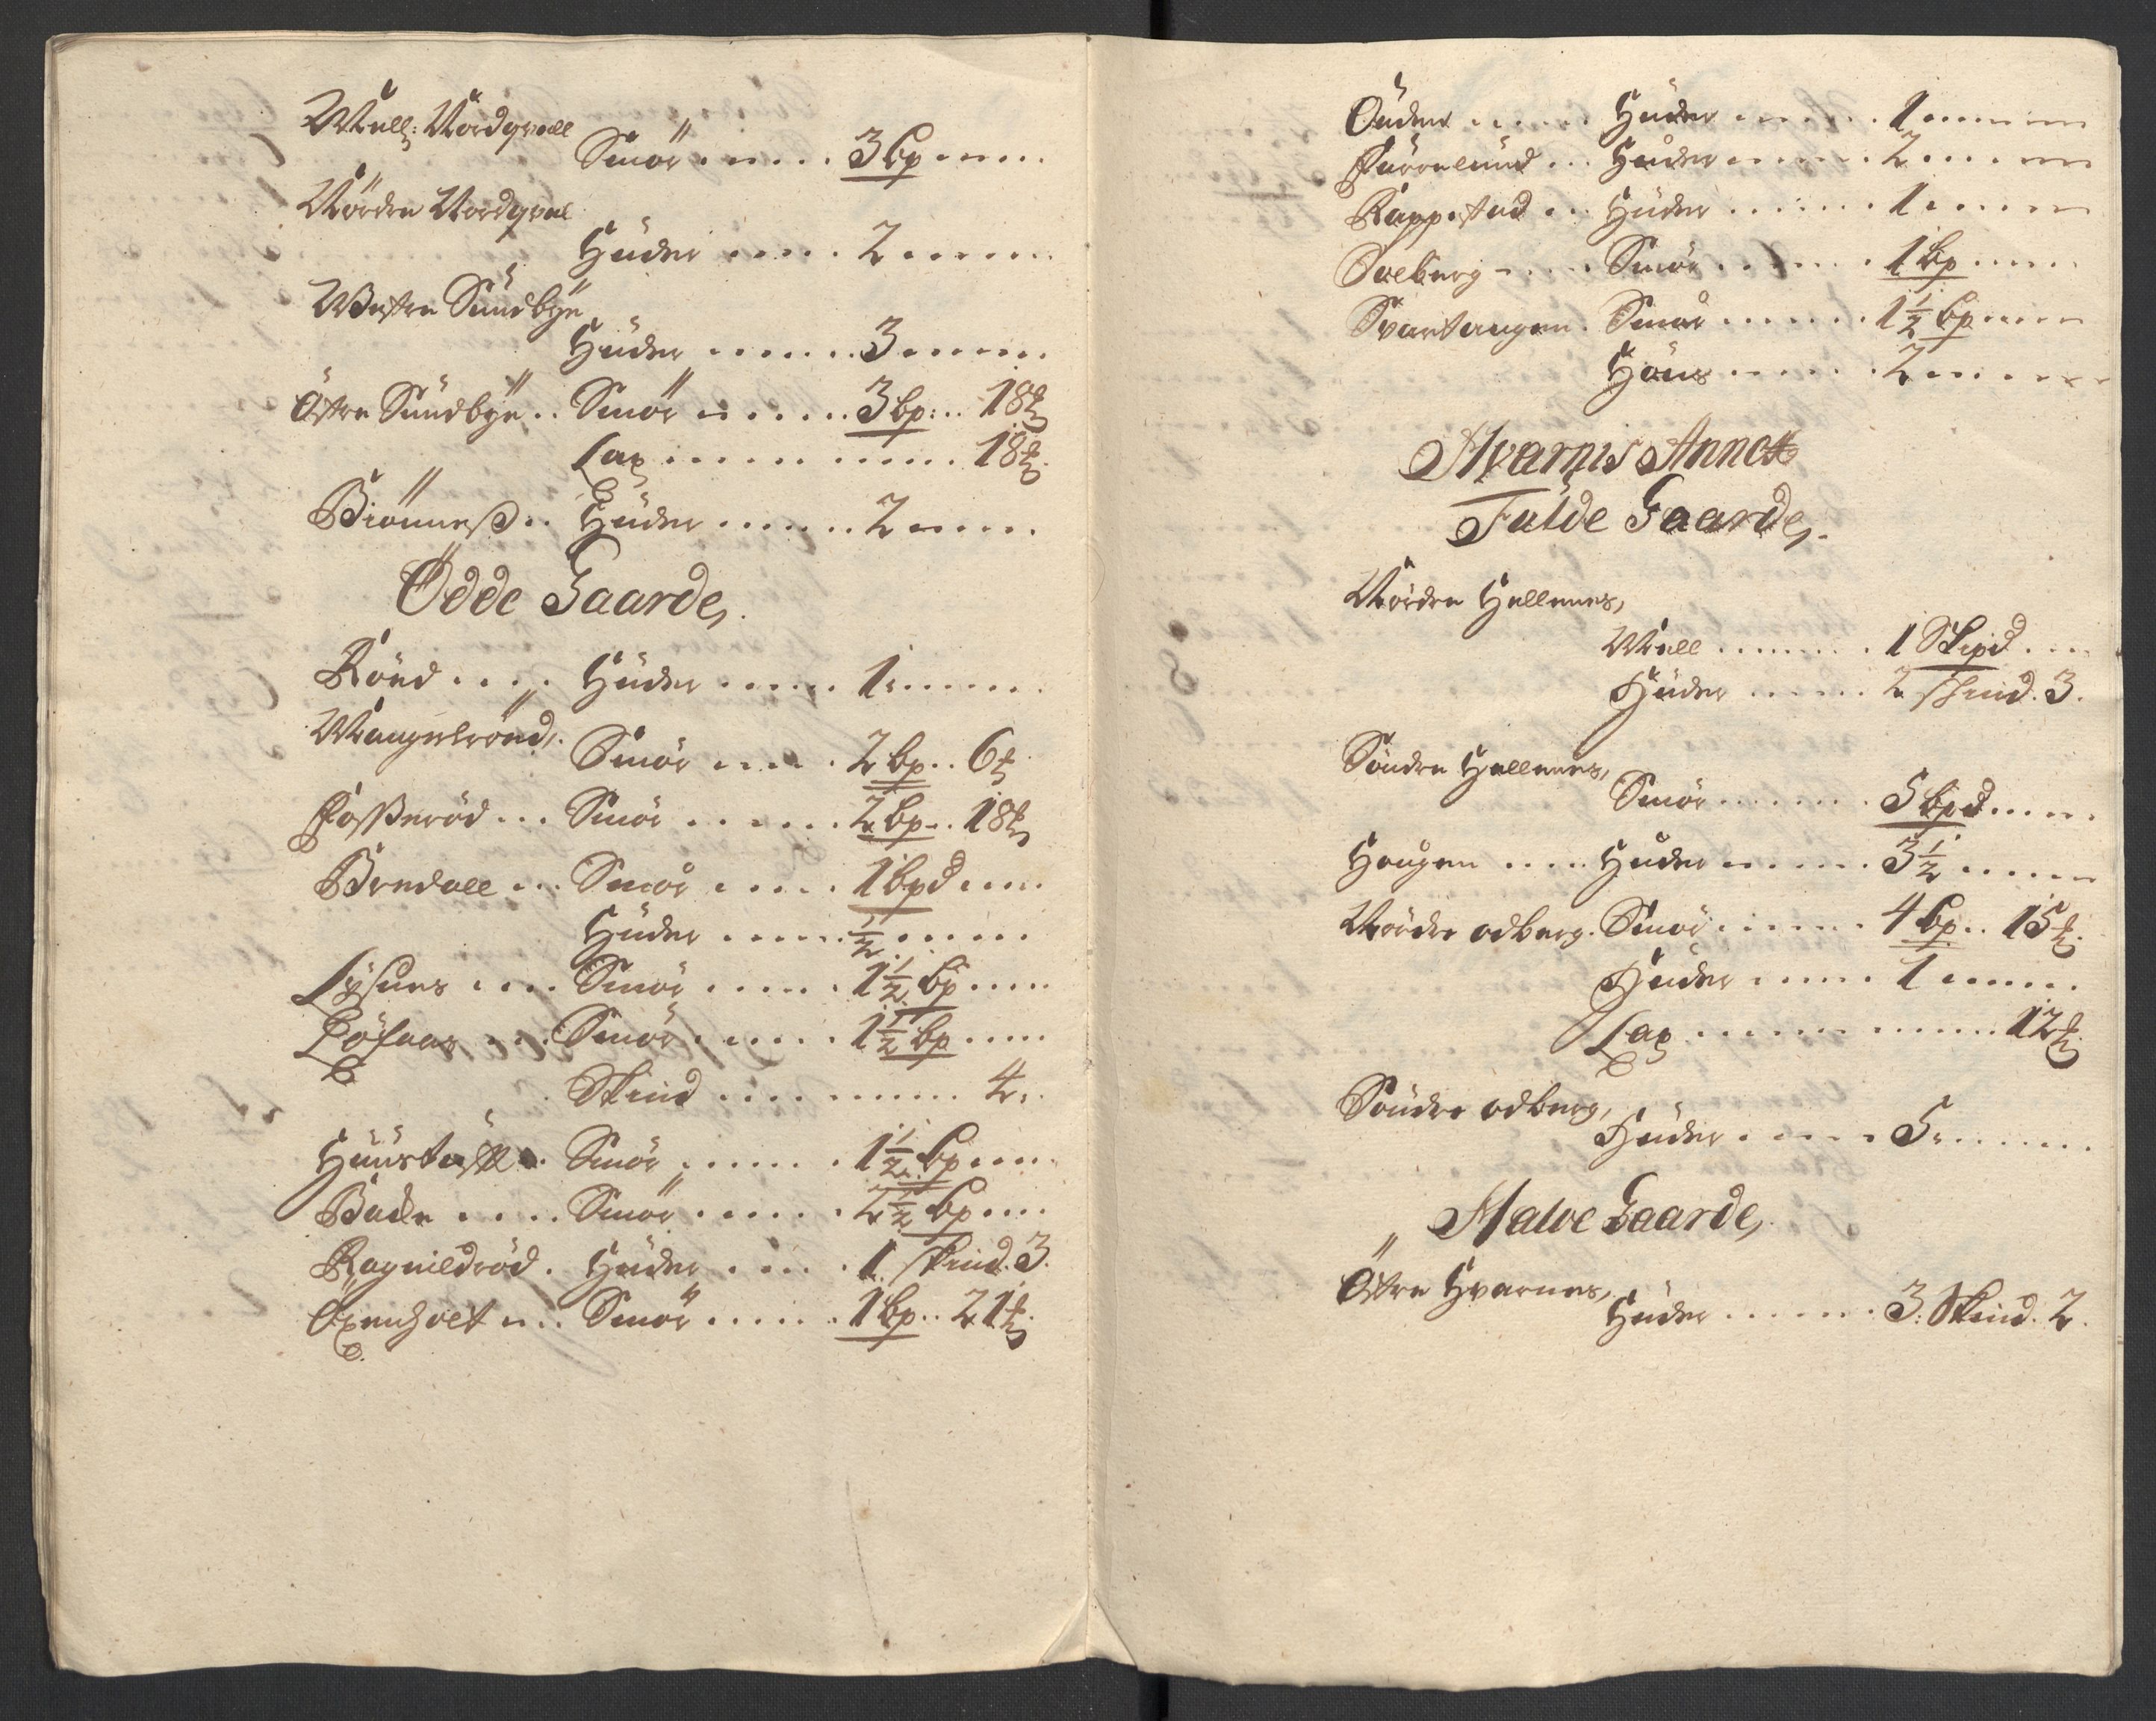 Mell: Nordqvell
Smör ..... 3 bp ....
Nörden Nordqvel
Huder ..... 2 ......
Westre Sundbÿe
Huder ...... 3 ......
Östre Sundbÿe .. Smör ...... 3 bp: .. 18 ℔
Lax ............ 18 ℔.
Biönneß .. Huder ....... 2 .....
Ödde Gaarde,.
Röed .... Huder ..... 1 ......
Mangelröed,.
Smör ..... 2 bp .. 6 ℔
Foßeröd ... Smör ...... 2 bp .. 18 ℔
Bredall ... Smör ..... 1 bpd ....
Huder ...... ½ ......
Lÿsnes .... Smör ..... 1½ bp .....
Löfaas ... Smör ...... 1½ bp .....
Skind ........... 4..
Smör ...... 1½ bp ....
Bache ..... Smör ...... 2½ bp ....
Ragnildröd . Huder ..... 1. skind. 3.
Öxenholt .... Smör ...... 1 bp .. 21 ℔
Ouden ...... Huder ...... 1 .......
Furrelund ... Huder ...... 2 ......
Rappestad ... Huder ...... 1 ......
Solberg ..... Smör ...... 1 bp .....
Svartangen . Smör ....... 1½ bp ....
Höns ...... 2 .......
Hvarnis Annex
Fulde Gaarde,.
Nordre Hellenes,
Mell ....... 1 Skpd ....
Huder ...... 2 skind. 3.
Söndre Hellenes,
Smör ....... 5 bpd .....
Hougen .... Huder ...... 3½ ......
Nordre odberg. Smör ...... 4 bp .. 15 ℔.
Huder ..... 1 ......
Lax ............ 12 ℔.
Söndre odberg,
Huder ..... 5 .......
Halve Gaarde,.
Östre Hvarnes,
Huder ...... 3: Skind. 2.